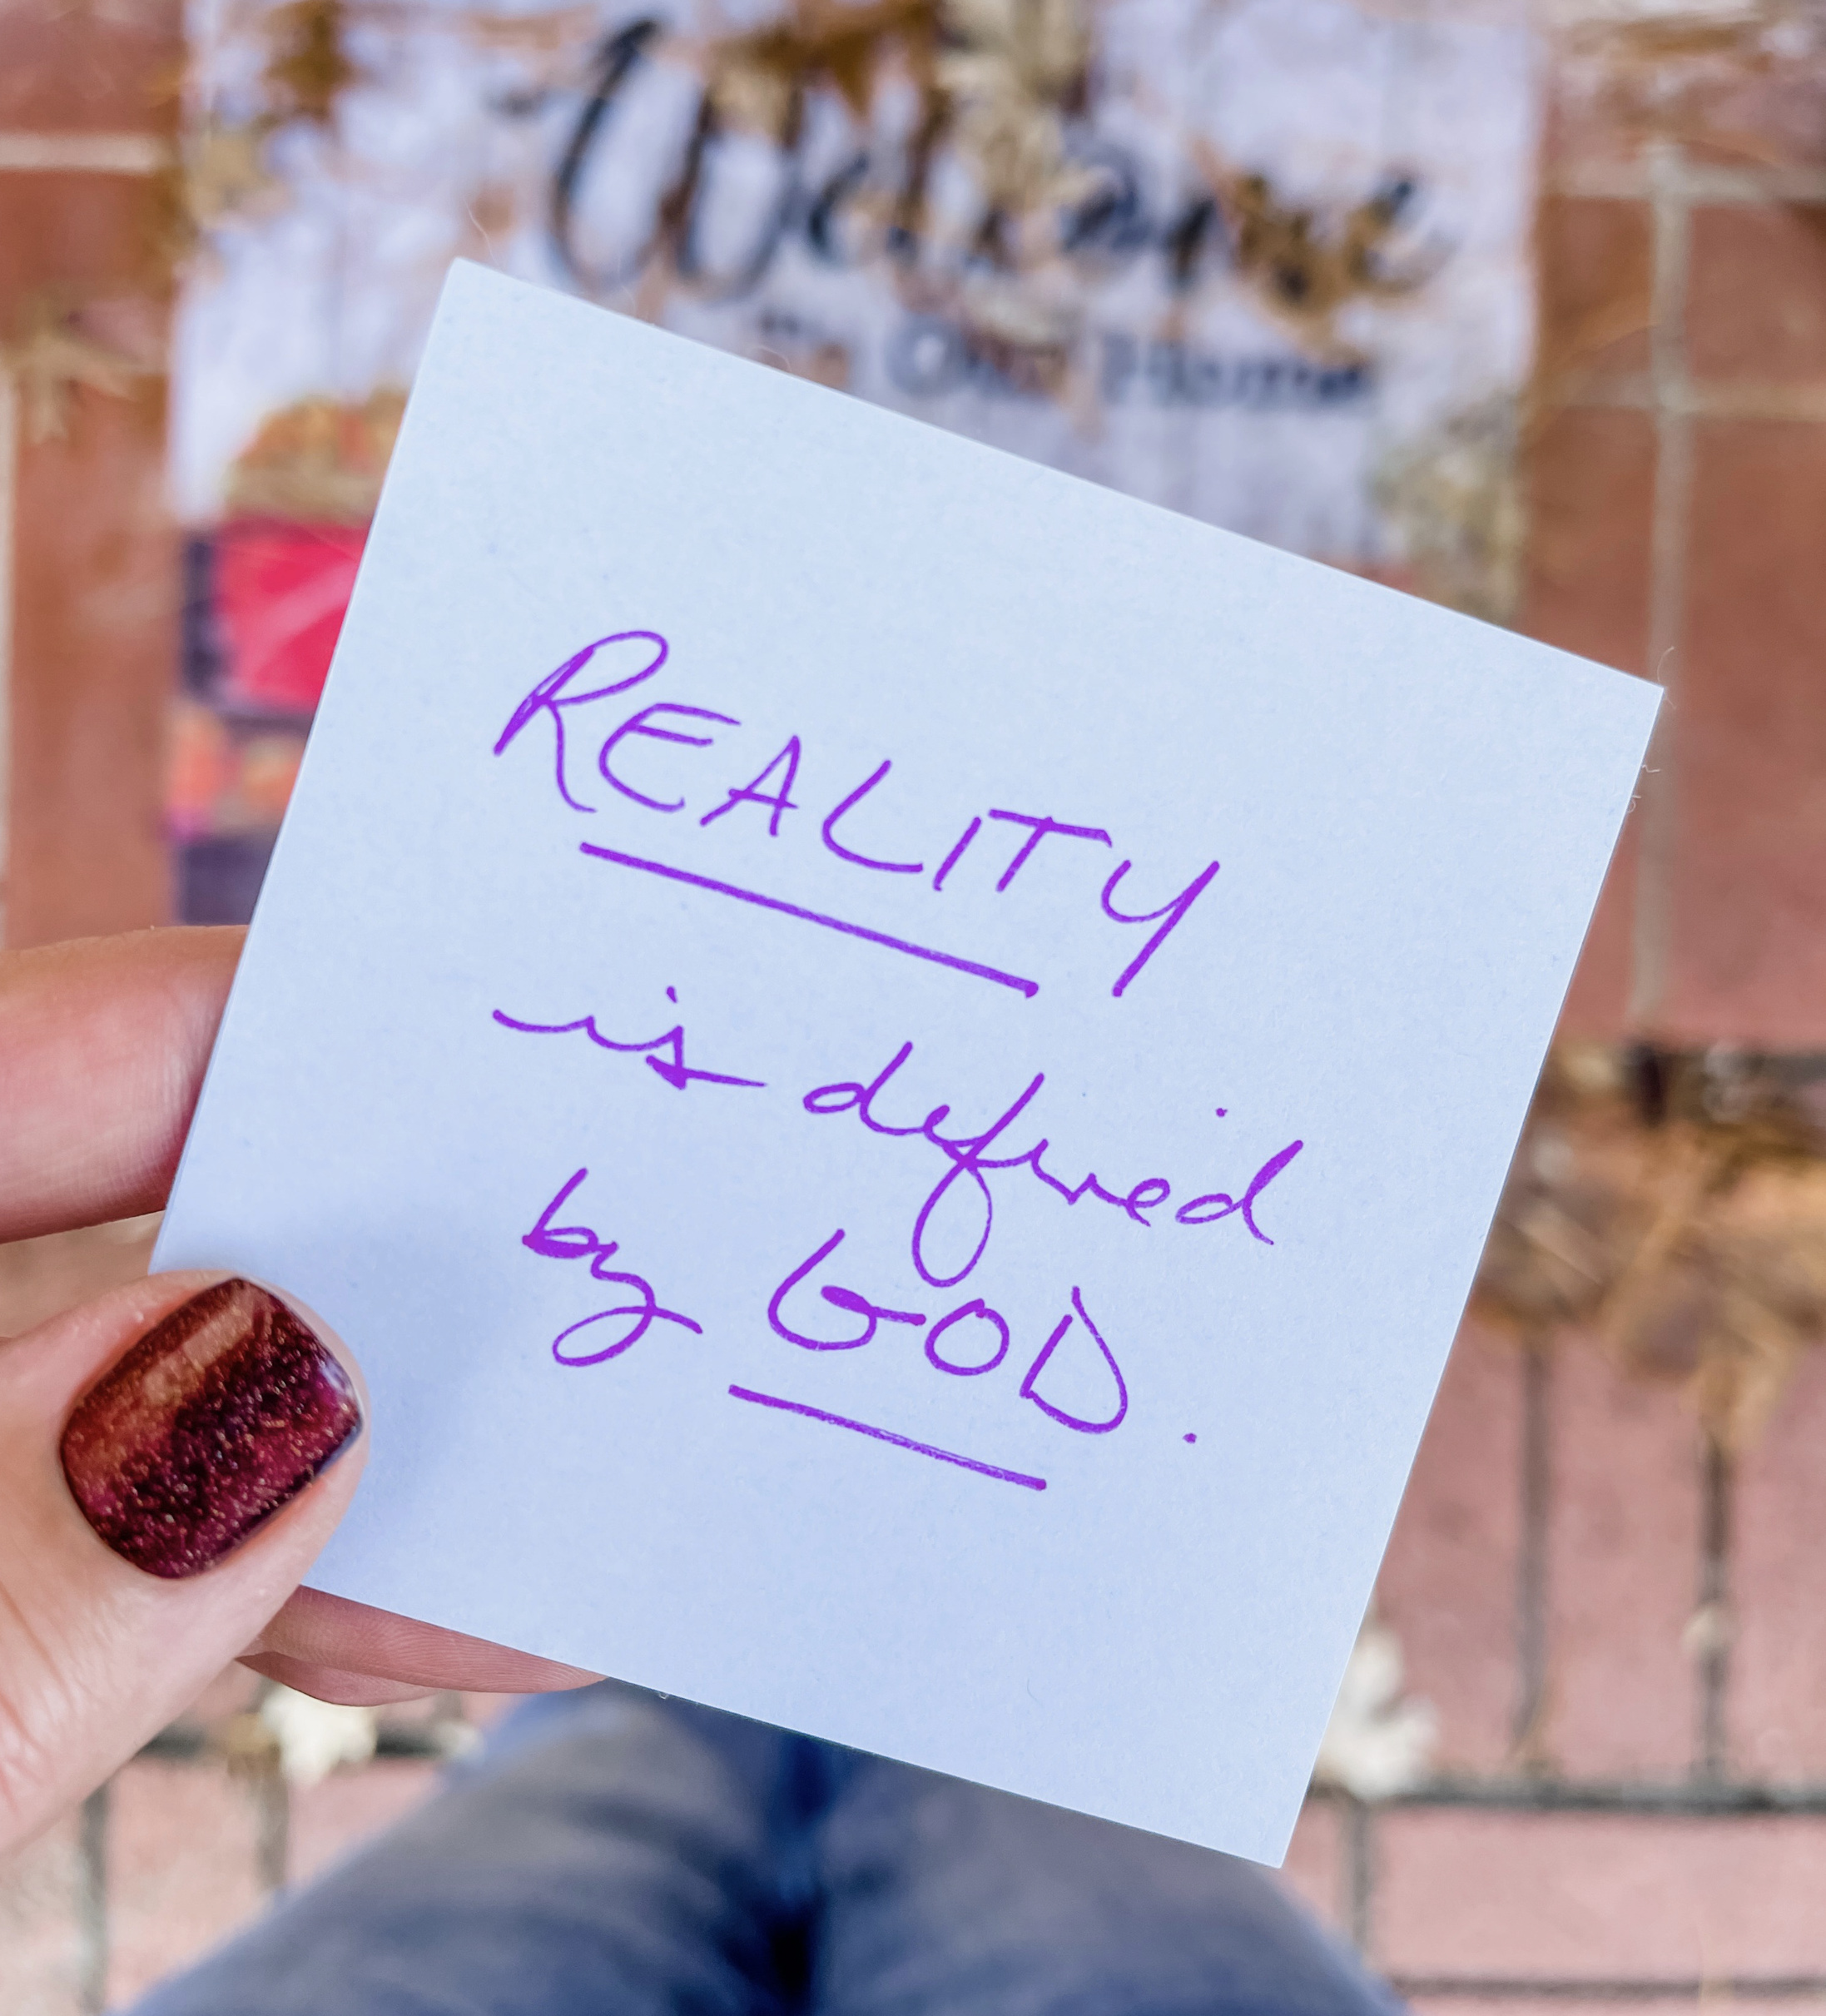 Welcome
to Our Home
REALITY
is defined
by GOD.